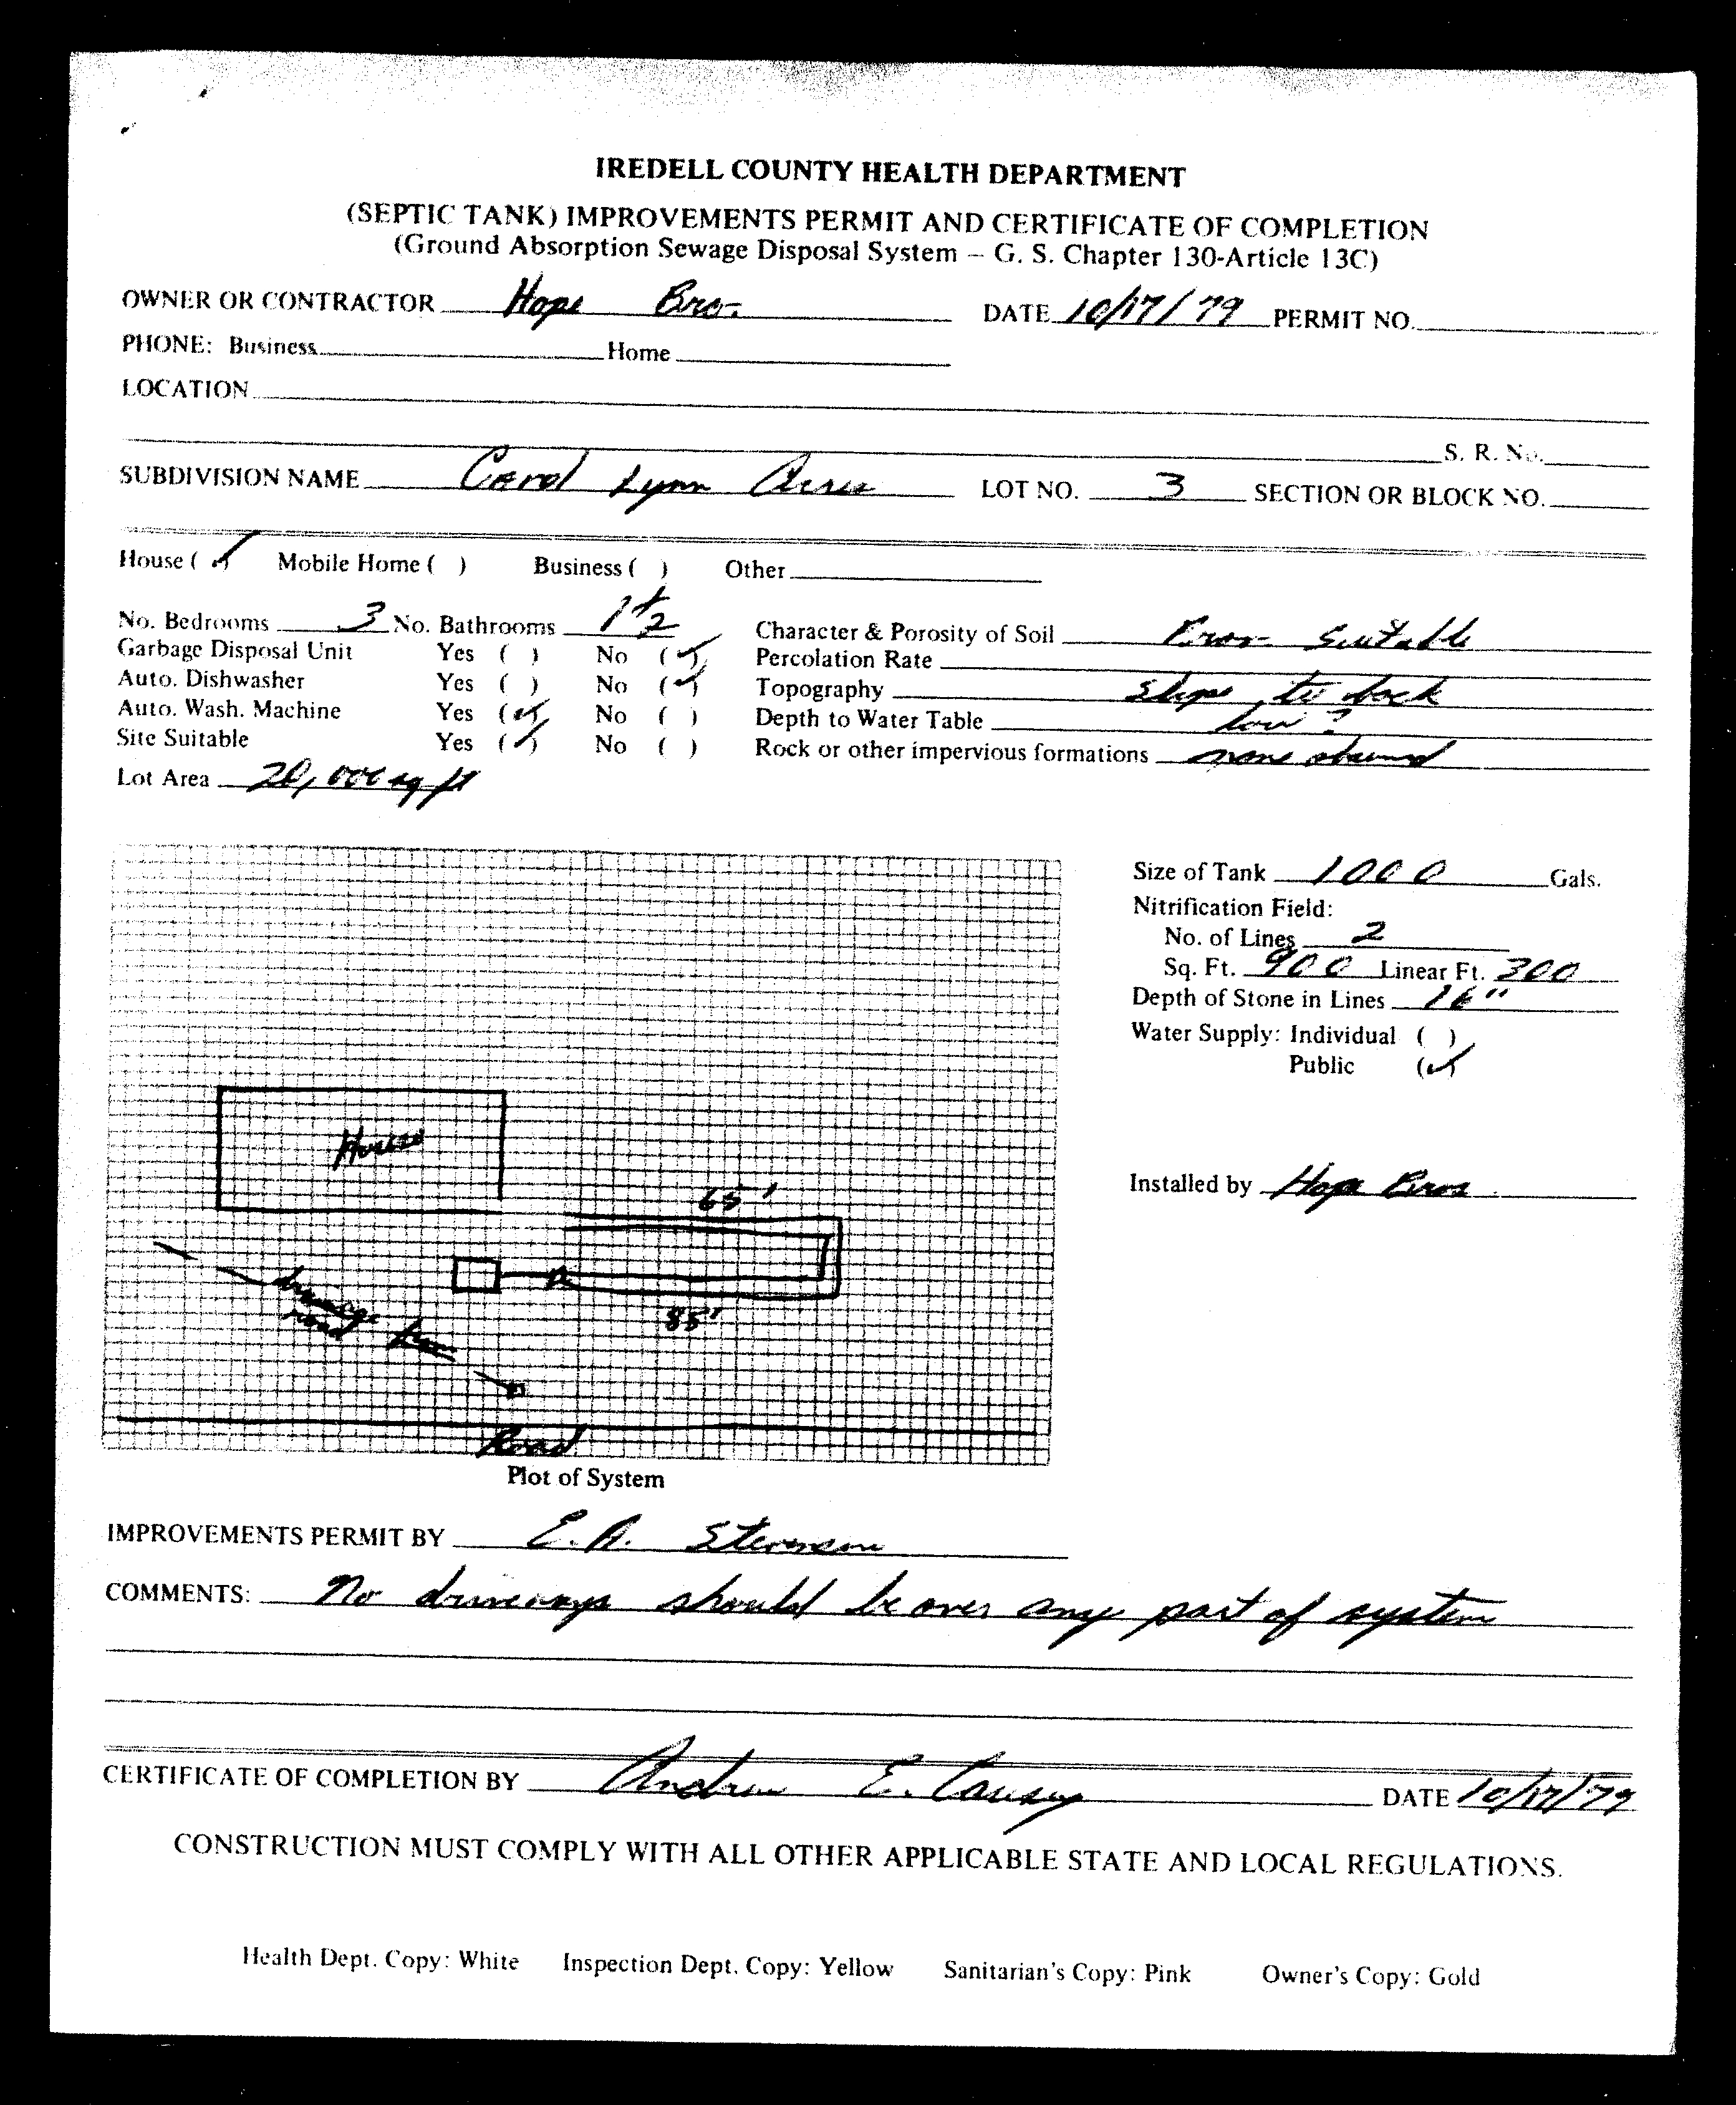 IREDELL COUNTY HEALTH DEPARTMENT
(SEPTIC TANK) IMPROVEMENTS PERMIT AND CERTIFICATE OF COMPLETION
(Ground Absorption Sewage Disposal System – G. S. Chapter 130-Article 13C)
OWNER OR CONTRACTOR Hope Bro. DATE 10/17/79 PERMIT NO.
PHONE: Business Home
LOCATION
S. R. No.
SUBDIVISION NAME Carol Lynn Acres LOT NO. 3 SECTION OR BLOCK NO.
House (✓) Mobile Home ( ) Business ( ) Other
No. Bedrooms 3 No. Bathrooms 1 1/2 Character & Porosity of Soil Prov. Suitable
Garbage Disposal Unit Yes ( ) No (✓) Percolation Rate
Auto. Dishwasher Yes ( ) No (✓) Topography slope to back
Auto. Wash. Machine Yes (✓) No ( ) Depth to Water Table low ?
Site Suitable Yes (✓) No ( ) Rock or other impervious formations none observed
Lot Area 20,000 sq ft
Size of Tank 1000 Gals.
Nitrification Field:
No. of Lines 2
Sq. Ft. 900 Linear Ft. 300
Depth of Stone in Lines 16"
Water Supply: Individual ( )
Public (✓)
Installed by Hope Bros
House
65'
drainage from
road
85'
Road
Plot of System
IMPROVEMENTS PERMIT BY E.A. Stevenson
COMMENTS: No driveways should be over any part of system
CERTIFICATE OF COMPLETION BY Andrew E. Causey DATE 10/17/79
CONSTRUCTION MUST COMPLY WITH ALL OTHER APPLICABLE STATE AND LOCAL REGULATIONS.
Health Dept. Copy: White Inspection Dept. Copy: Yellow Sanitarian's Copy: Pink Owner's Copy: Gold